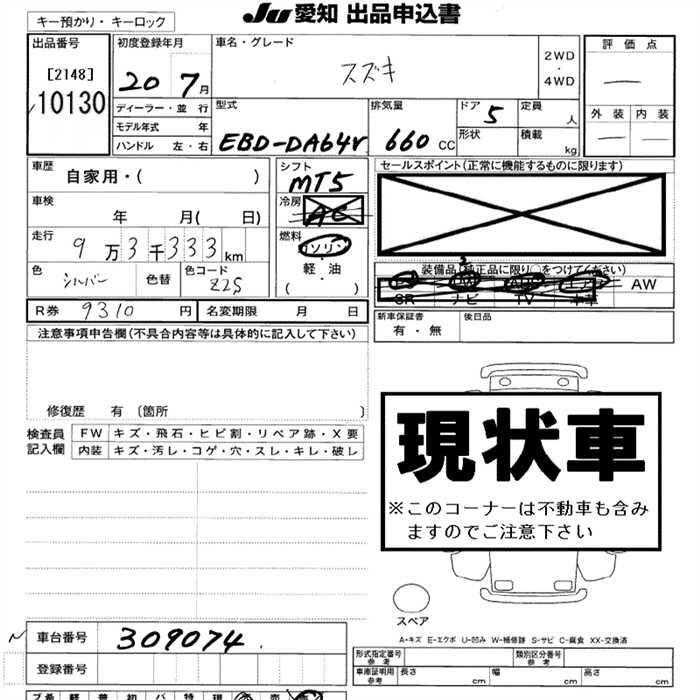 キー預かり・キーロック
JU愛知 出品申込書
出品番号
[2148]
10130
初度登録年月
20 7月
ディーラー・並 行
モデル年式 年
ハンドル 左・右
車名・グレード
スズキ
2WD
・
4WD
型式
EBD-DA64V
排気量
660 CC
ドア 5
形状
定員 人
積載 kg
評価点
—
外装 内装
— —
車歴
自家用・( )
車検
年 月( 日)
走行
9万3千333km
色 シルバー
色替
色コード Z2S
シフト
MT5
冷房
AC
燃料
ガソリン
・
軽・油
( )
セールスポイント(正常に機能するものに限ります)
装備品(純正品に限り○をつけてください)
SR ナビ TV 本革 AW
新車保証書
有・無
後日品
R券 9310 円
名変期限 月 日
注意事項申告欄(不具合内容等は具体的に記入して下さい)
修復歴 有 〔箇所 〕
検査員
記入欄
FW キズ・飛石・ヒビ割・リペア跡・X要
内装 キズ・汚レ・コゲ・穴・スレ・キレ・破レ
現状車
※このコーナーは不動車も含み
ますのでご注意下さい
スペア
A-キズ E-エクボ U-凹み W-補修跡 S-サビ C-腐食 XX-交換済
車台番号 309074
登録番号
形式指定番号
参考
類別区分番号
参考
車庫証明用
参考
長さ cm 幅 cm 高さ cm